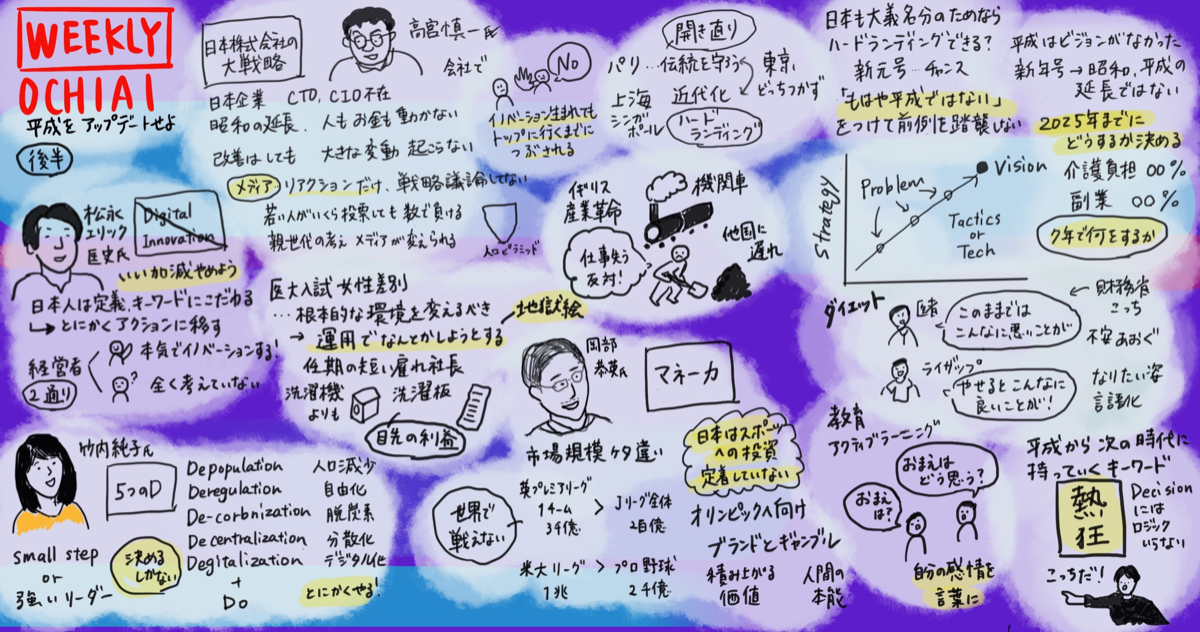 WEEKLY
OCHIAI
平成を アップデートせよ
後半
日本株式会社の
大戦略
高宮慎一氏
会社で
日本企業 CTO, CIO不在
昭和の延長、人もお金も動かない
改善はしても 大きな変動 起こらない
メディア リアクションだけ、戦略議論してない
若い人がいくら投票しても 数で負ける
親世代の考え メディアが変えられる
人口ピラミッド
No
イノベーション生まれても
トップに行くまでに
つぶされる
開き直り
パリ…伝統を守る
東京
どっちつかず
上海
シンガ
ポール
近代化
ハード
ランディング
日本も大義名分のためなら
ハードランディングできる?
新元号…チャンス
「もはや平成ではない」
をつけて前例を踏襲しない
平成はビジョンがなかった
新年号→昭和、平成の
延長ではない
2025年までに
どうするか決める
介護負担 〇〇%
副業 〇〇%
7年で何をするか
Strategy
Problem
Vision
Tactics
or
Tech
松永
エリック
匡史氏
Digital
Innovation
いい加減やめよう
日本人は定義、キーワードにこだわる
↳とにかくアクションに移す
経営者
2通り
本気でイノベーションする!
全く考えていない
医大入試 女性差別
…根本的な環境を変えるべき
→運用でなんとかしようとする
地獄絵
任期の短い雇れ社長
洗濯機
よりも
洗濯板
目先の利益
イギリス
産業革命
機関車
仕事失う
反対!
他国に
遅れ
岡部
恭英氏
マネーカ
市場規模 ケタ違い
世界で
戦えない
英プレミアリーグ
1チーム
3千億
>
Jリーグ全体
2百億
米大リーグ
1兆
>
プロ野球
2千億
日本はスポーツ
への投資
定着していない
オリンピックへ向け
ブランドとギャンブル
積み上がる
価値
人間の
本能
ダイエット
医者
このままでは
こんなに悪いことが
←財務省
こっち
不安あおぐ
ライザップ
やせるとこんなに
良いことが!
なりたい姿
言語化
教育
アクティブラーニング
おまえは
どう思う?
おまえ
は?
自分の感情を
言葉に
平成から 次の時代に
持っていく キーワード
熱
狂
Decision
には
ロジック
いらない
こっちだ!
竹内純子氏
5つのD
Depopulation 人口減少
Deregulation 自由化
De-corbnization 脱炭素
Decentralization 分散化
Degitalization デジタル化
+
Do
とにかくやる!
small step
or
強いリーダー
決める
しかない